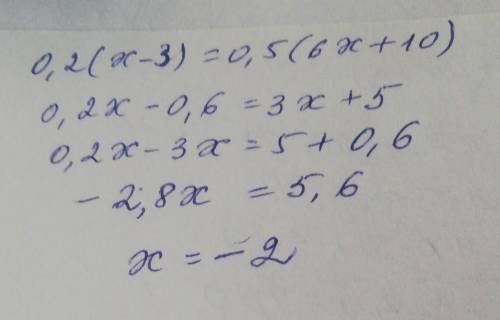 0,2(x-3)=0,5(6x+10)
0,2x-0,6=3x+5
0,2x-3x=5+0,6
-2,8x=5,6
x=-2